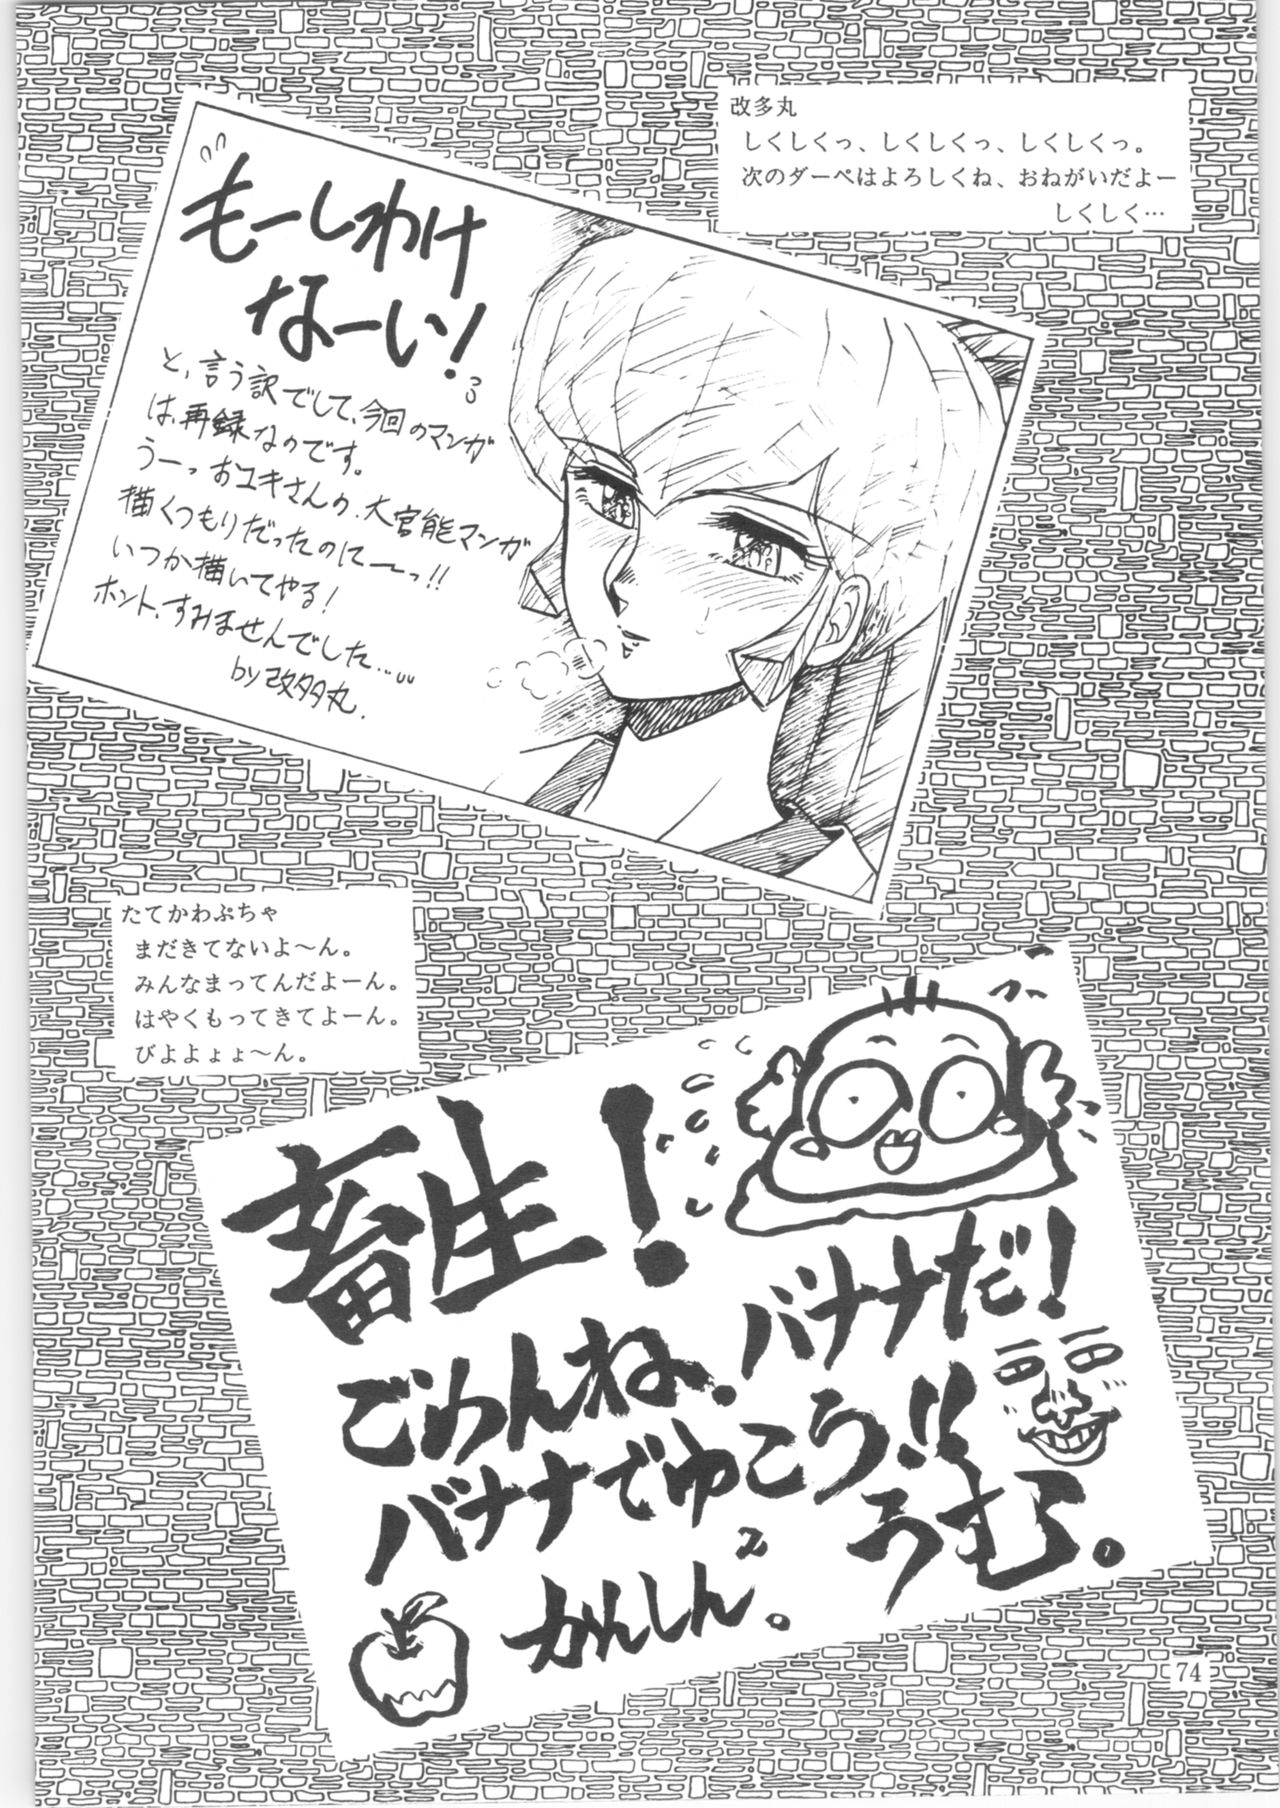 改多丸
しくしくっ、しくしくっ、しくしくっ。
次のダーペはよろしくね、おねがいだよー
しくしく…
もーしわけ
なーい!
と、言う訳でして、今回のマンガ
は、再録なのです。
うーっおユキさんの、大官能マンガ
描くつもりだったのにーっ!!
いつか描いてやる!
ホント、すみませんでした…
by改多丸.
たてかわぷちゃ
まだきてないよ〜ん。
みんなまってんだよーん。
はやくもってきてよーん。
びよよょょ〜ん。
畜生!
ごめんね、バナナだ!
バナナでゆこう!!
うむ。
かんしん2。
74